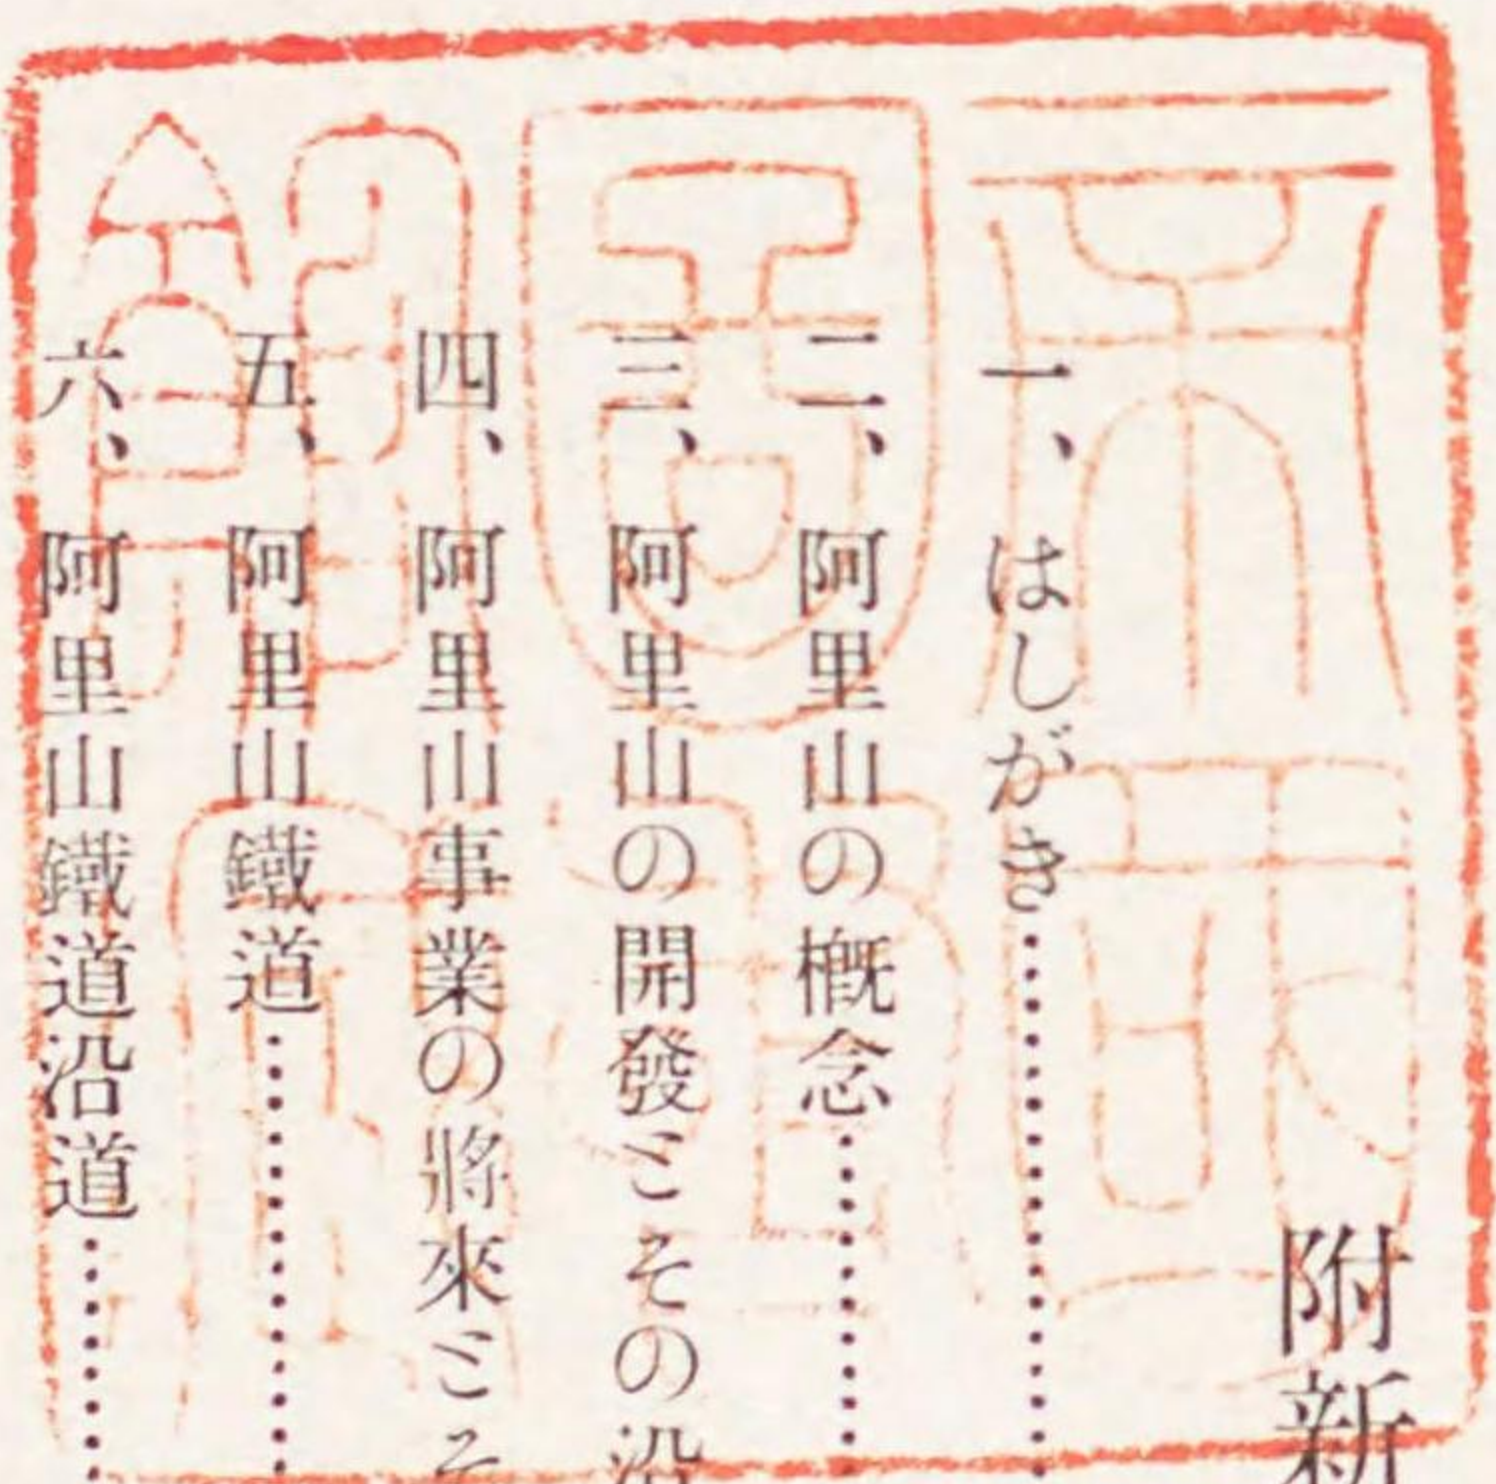 附新
一、はしがき
二、阿里山の概念
三、阿里山の開發とその沿
四、阿里山事業の將來とそ
五、阿里山鐵道
六、阿里山鐵道沿道